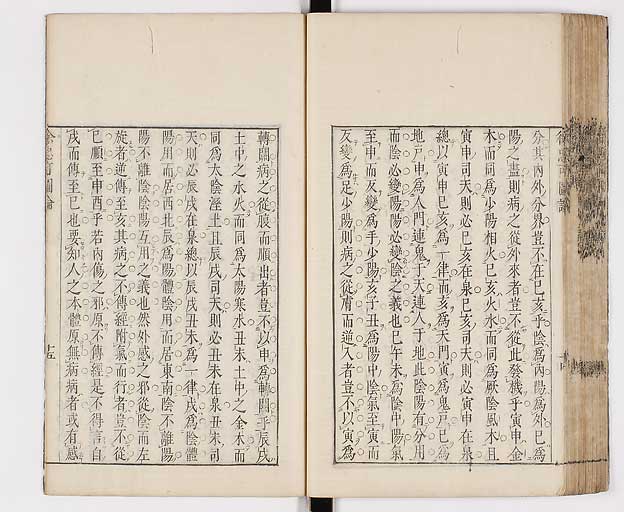 分其內外分界豈不在巳亥乎陰爲內陽爲外巳爲
陽之盡則病之從外來者豈不從此發機乎寅申金
木而同爲少陽相火巳亥火水而同爲厥陰風木且
寅申司天則必巳亥在泉巳亥司天則必寅申在泉
總以寅申巳亥爲一律而亥爲天門寅爲鬼戸巳爲
地戸申爲人門連鬼于天連人于地此陰陽有分用
而陰必變陽陽必變陰之義也巳午未爲陰中陽氣
至申而反變爲手少陽亥子丑爲陽中陰氣至寅而
反變爲足少陽則病之從膚而逆入者豈不以寅爲
轉關病之從腹而順出者豈不以申爲轉關乎辰戌
土中之水火而同爲太陽寒水丑未土中之金木而
同爲太陰溼土且辰戌司天則必丑未在泉丑未司
天則必辰戌在泉總以辰戌丑未爲一律戌爲陰體
陽用而居西北辰爲陽體陰用而居東南陰不離陽
陽不離陰陰陽互用之義也然外感之邪從陰而左
旋者逆傳至亥其病之不傳經附氣而行者豈不從
巳順至申酉乎若內傷之邪原不傳經是不得言自
戌而傳至巳也要知人之本體原無病病者或有感